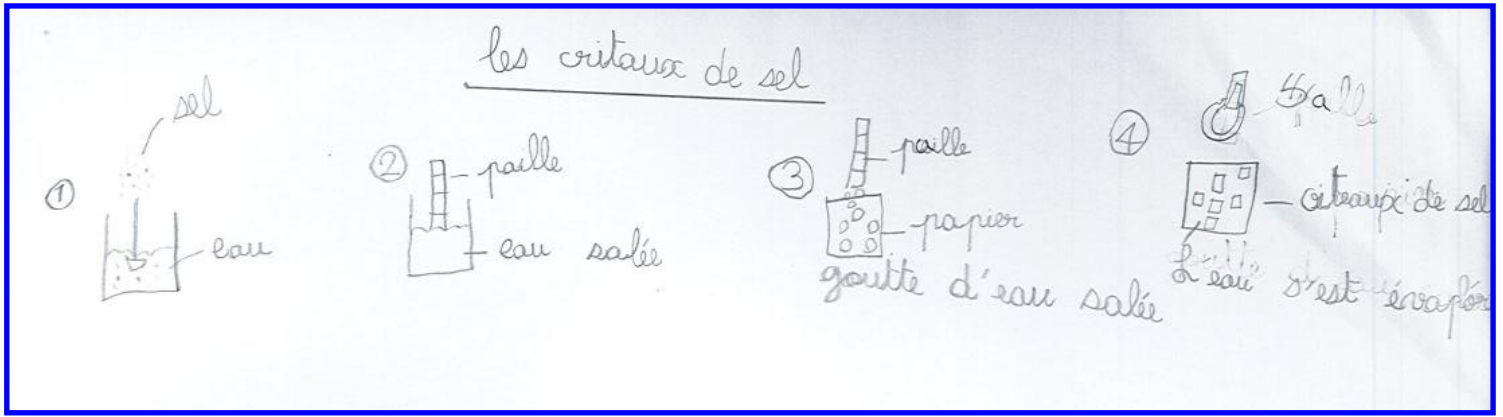 les critaux de sel
1
sel
eau
2
paille
eau salée
3
paille
papier
goutte d'eau salée
4
de sel
L'eau s'est évapor